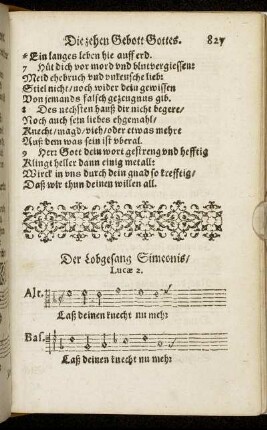 Die zehen Gebott Gottes. 827
Ein langes leben hie auff erd.
7 Hüt dich vor mord vnd blutvergiessen:
Meid ehebruch vnd vnkeusche lieb:
Stiel nicht/noch wider dein gewissen
Von jemands falsch gezeugnus gib.
8 Des nechsten hauß dir nicht begere/
Noch auch sein liebes ehgemahl/
Knecht/magd/vieh/oder etwas mehre
Auß dem was sein ist vberal.
9 Herr Gott dein wort gestreng vnd hefftig
Klingt heller dann einig metall:
Wirck in vns durch dein gnad so krefftig/
Daß wir thun deinen willen all.
Der Lobgesang Simeonis/
Lucæ 2.
Alt.
Laß deinen knecht nu mehr
Bas.
Laß deinen knecht nu mehr